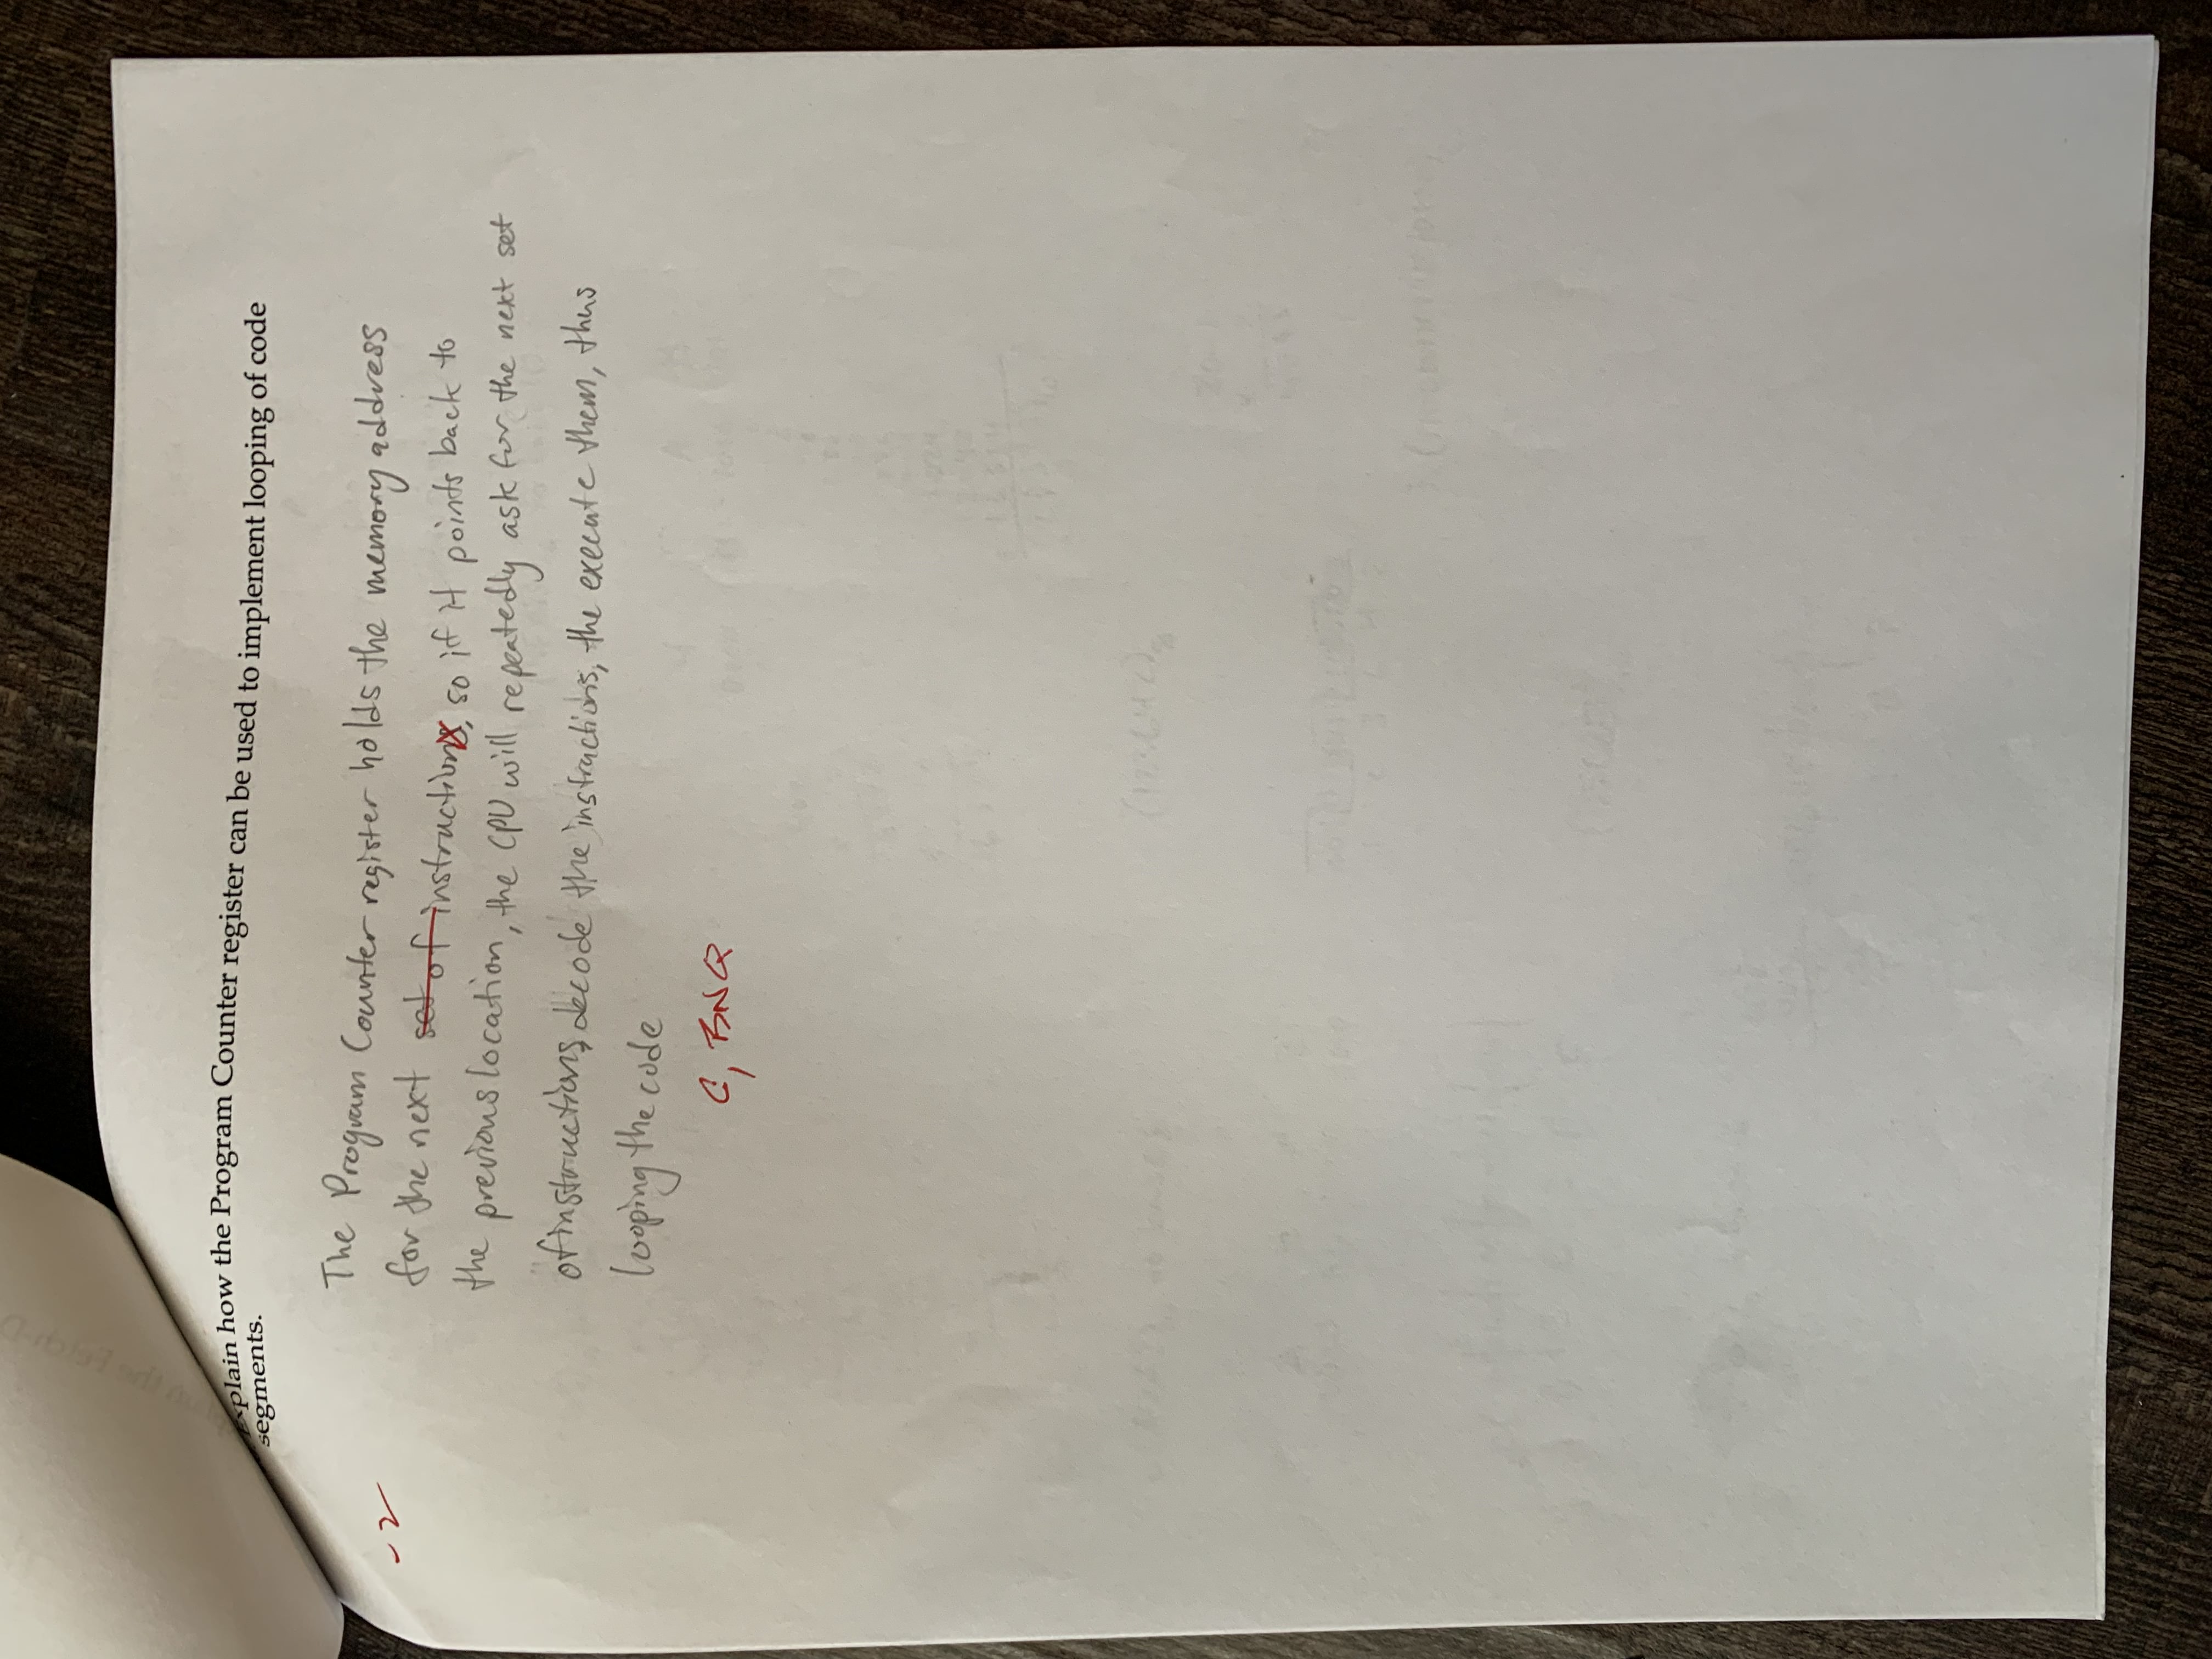 Explain how the Program Counter register can be used to implement looping of code
segments.
-2
The Program Counter register holds the memory address
for the next set of instructions, so if it points back to
the previous location, the CPU will repeatedly ask for the next set
of instructions, decode the instructions, the execute them, thus
looping the code
C, BNQ